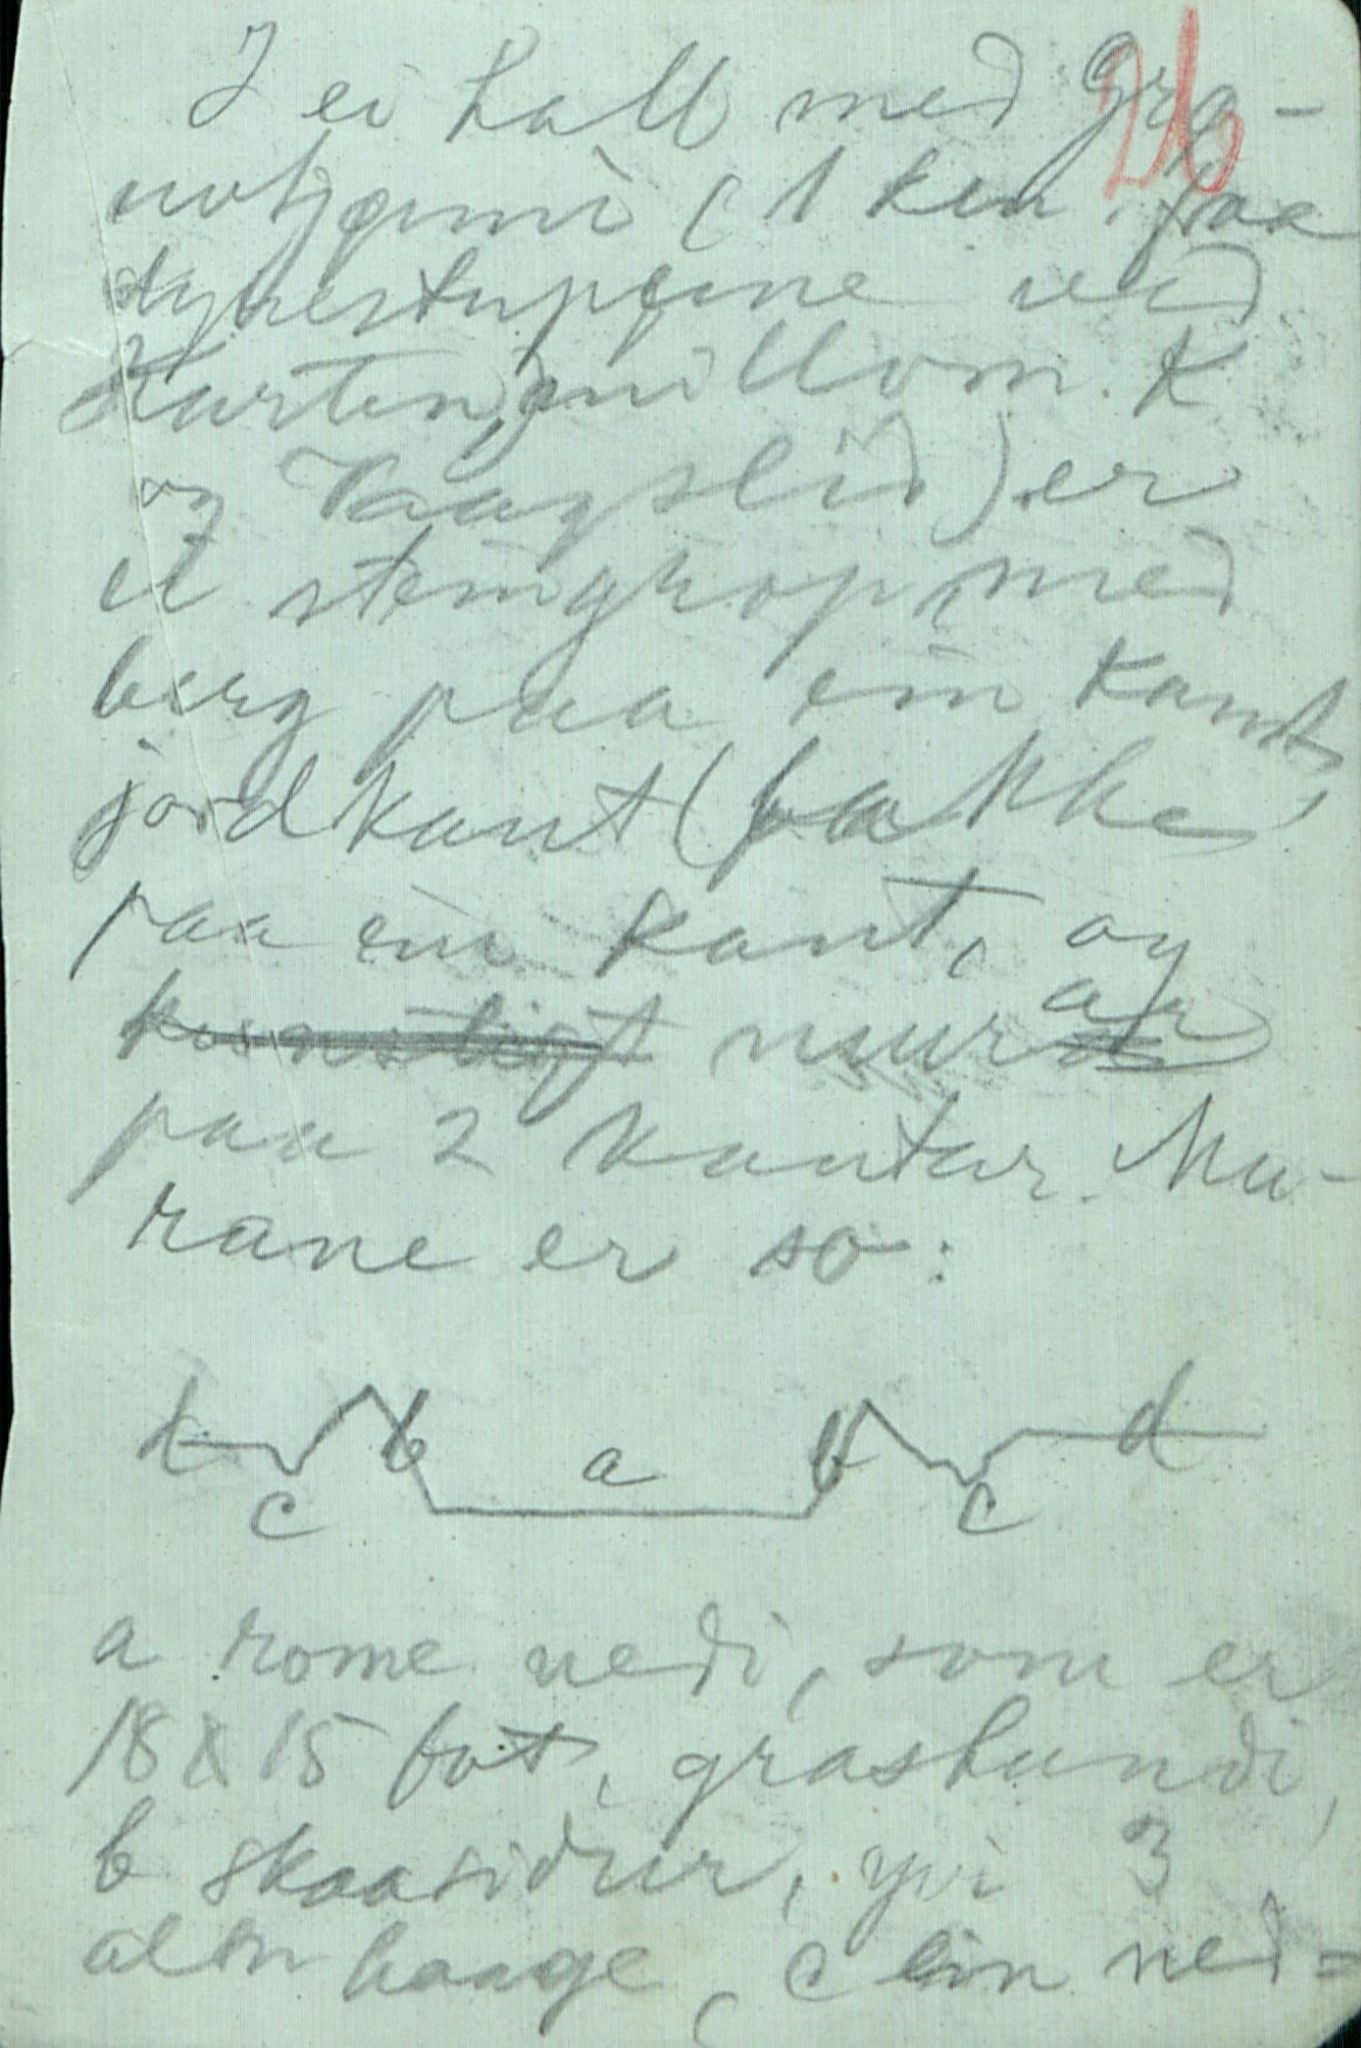 26
I ei hall med Gra-
votjønni (1 km fraa
dyrestupene ved
Karten, millom K
og Vaagslid) er
et steingrop, med
berg paa ein kant,
jordkant (bakke
paa ein kant, og
kunstigt murar
paa 2 kantar. Mu-
rane er so:
d b a b d
c c
a rome nedi, som er
18 X 15 fot, grasbundi,
b skaasidur, yvi 3
aln haage, c ein ned=